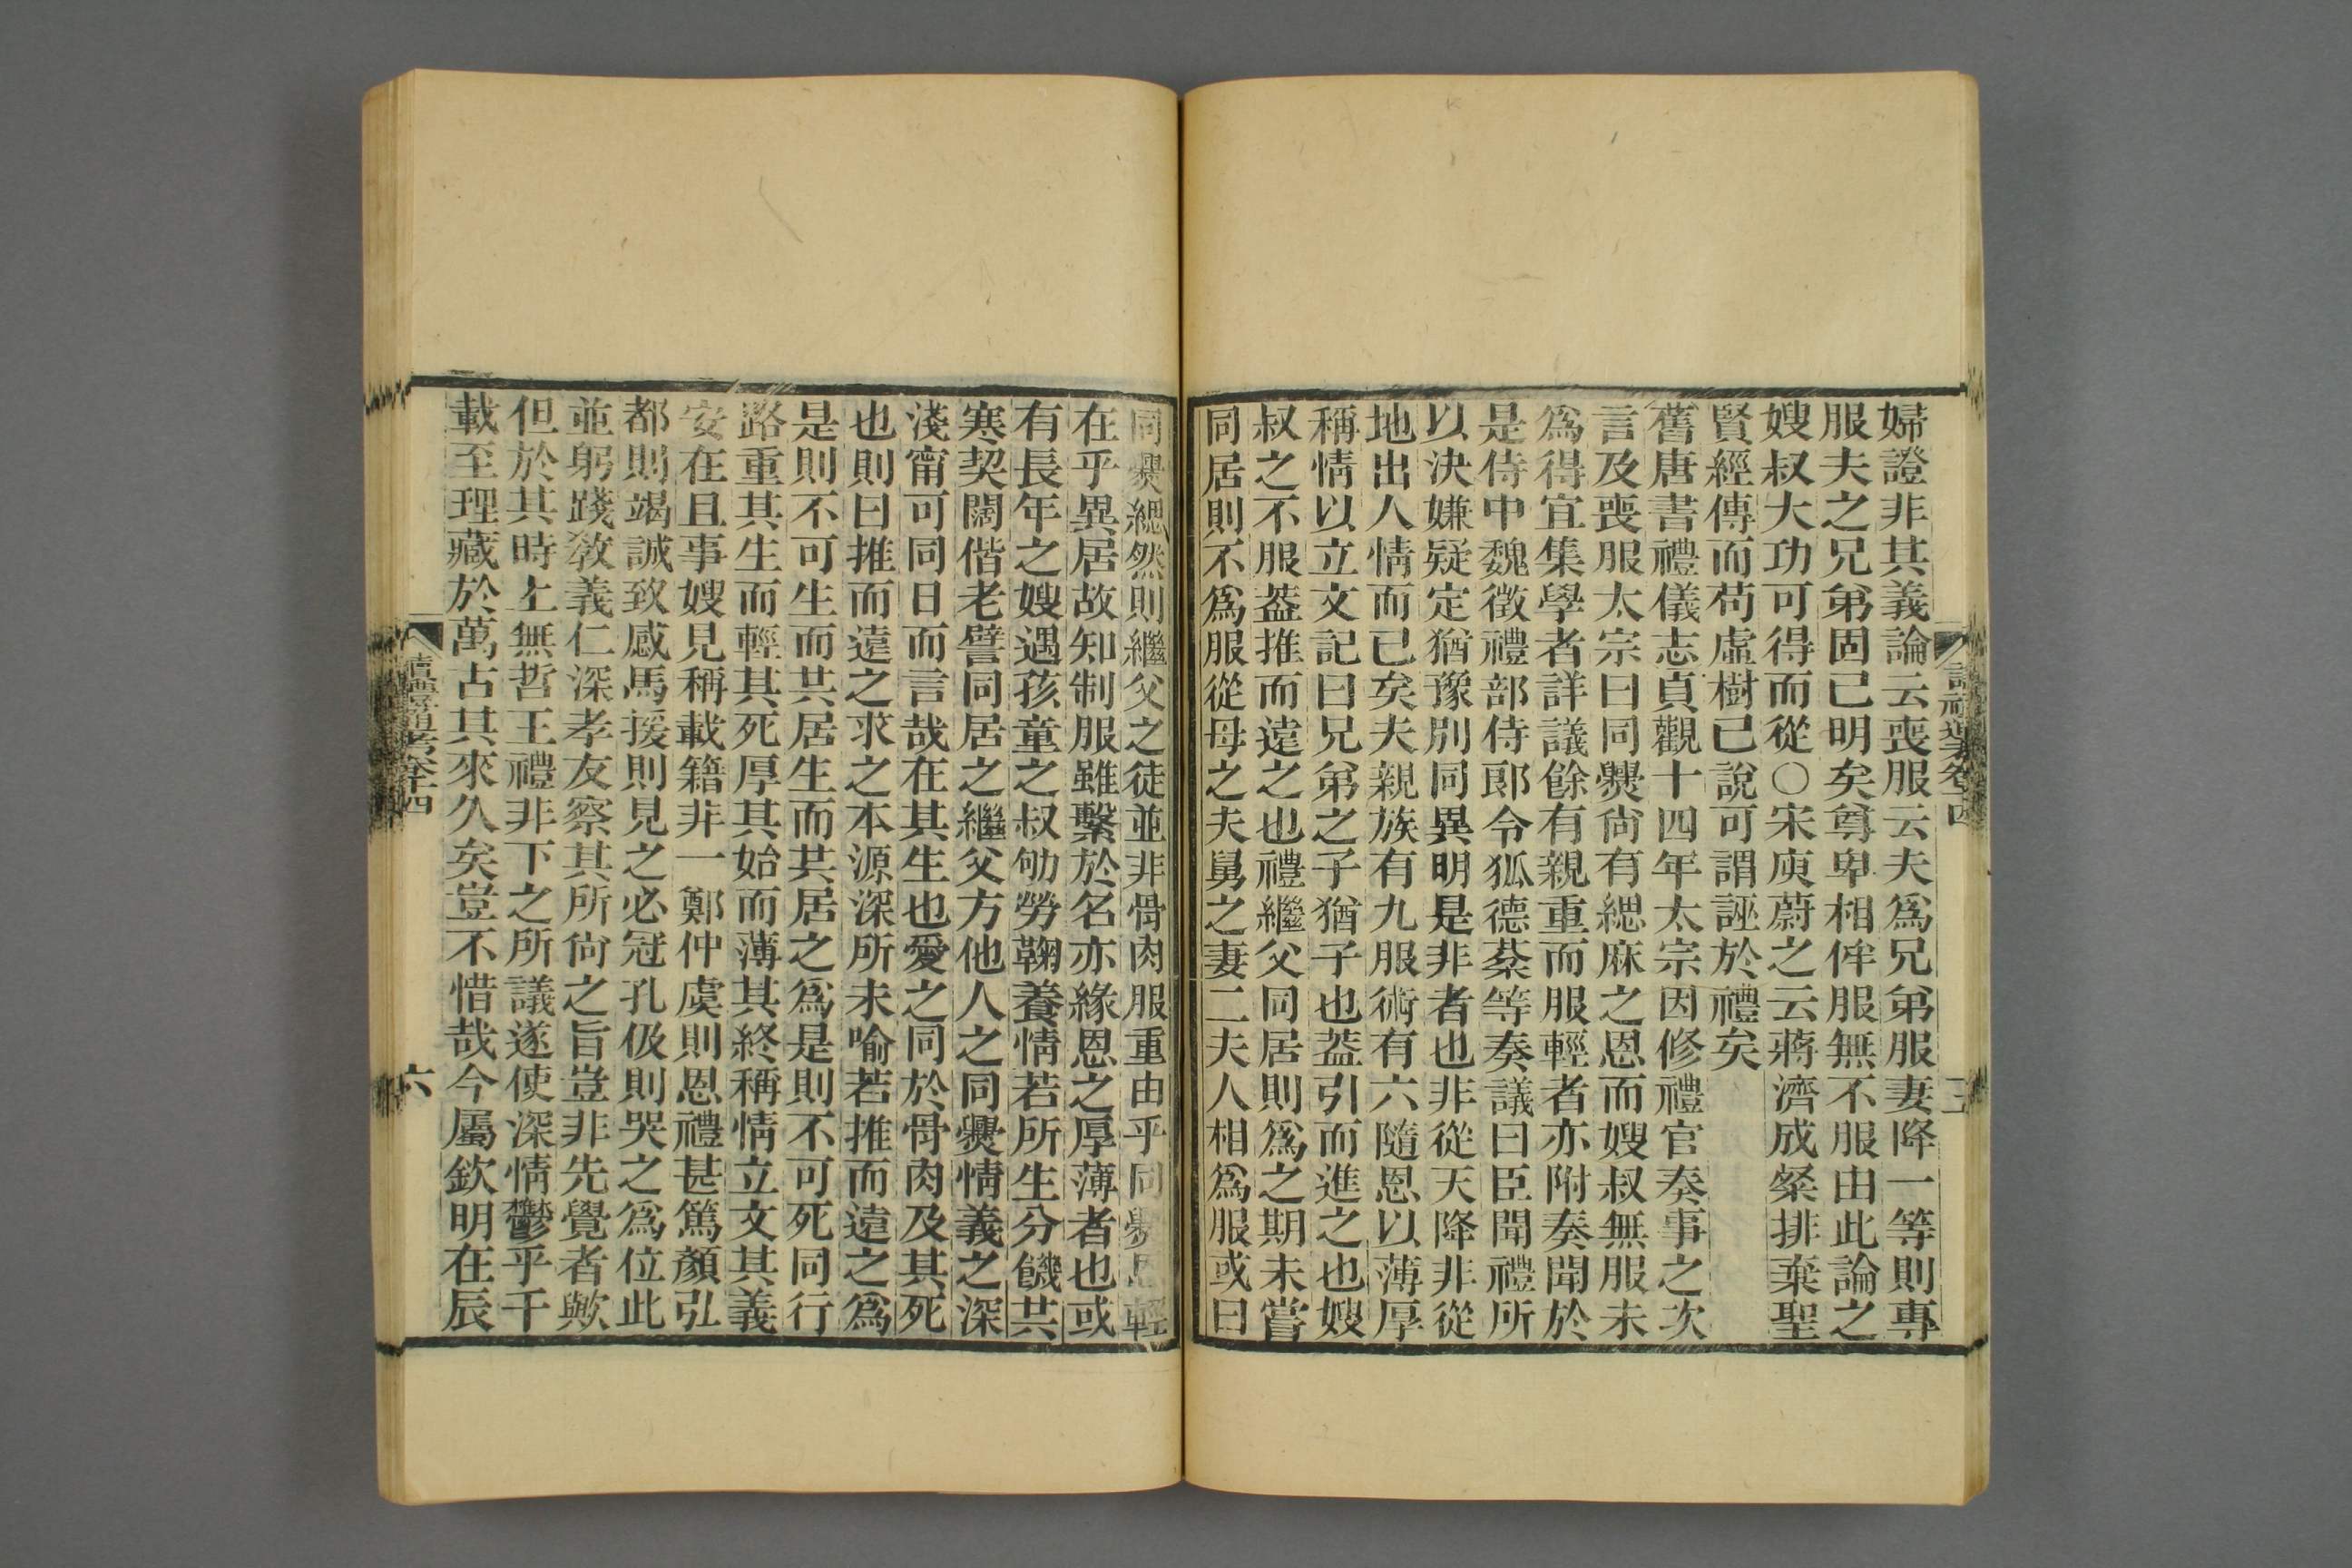 婦證非其義論云喪服云夫爲兄弟服妻降一等則專
服夫之兄弟固已明矣尊卑相侔服無不服由此論之
嫂叔大功可得而從○宋庾蔚之云蔣濟成粲排棄聖
賢經傳而苟虛樹已說可謂誣於禮矣
舊唐書禮儀志貞觀十四年太宗因修禮官奏事之次
言及喪服太宗曰同爨尙有緦麻之恩而嫂叔無服未
爲得宜集學者詳議餘有親重而服輕者亦附奏聞於
是侍中魏徵禮部侍郎令狐德棻等奏議曰臣聞禮所
以決嫌疑定猶豫別同異明是非者也非從天降非從
地出人情而已矣夫親族有九服術有六隨恩以薄厚
稱情以立文記曰兄弟之子猶子也葢引而進之也嫂
叔之不服葢推而遠之也禮繼父同居則爲之期未嘗
同居則不爲服從母之夫舅之妻二夫人相爲服或曰
同爨緦然則繼父之徒並非骨肉服重由乎同爨恩輕
在乎異居故知制服雖繫於名亦緣恩之厚薄者也或
有長年之嫂遇孩童之叔劬勞鞠養情若所生分饑共
寒契闊偕老譬同居之繼父方他人之同爨情義之深
淺甯可同日而言哉在其生也愛之同於骨肉及其死
也則曰推而遠之求之本源深所未喻若推而遠之爲
是則不可生而共居生而共居之爲是則不可死同行
路重其生而輕其死厚其始而薄其終稱情立文其義
安在且事嫂見稱載籍非一鄭仲虞則恩禮甚篤顏弘
都則竭誠致感馬援則見之必冠孔伋則哭之爲位此
並躬踐敎義仁深孝友察其所尙之旨豈非先覺者歟
但於其時上無哲王禮非下之所議遂使深情鬱乎千
載至理藏於萬古其來久矣豈不惜哉今屬欽明在辰
讀禮通考卷十四
六